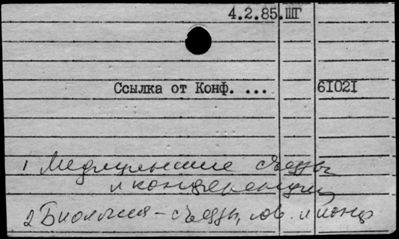 4.2.85.ШГ
Ссылка от Конф. ... 61021
1 Медицинские съезды
и конференции
2 Биология - съезды, сов. и конф